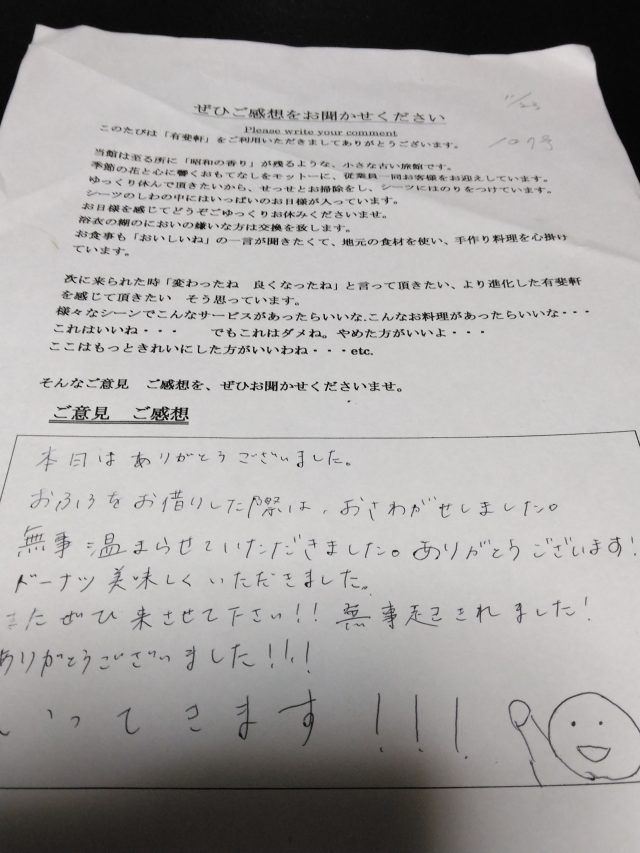 11/23
107号
ぜひご感想をお聞かせください
Please write your comment
このたびは「有斐軒」をご利用いただきましてありがとうございます。
当館は至る所に「昭和の香り」が残るような、小さな古い旅館です。
季節の花と心に響くおもてなしをモットーに、従業員一同お客様をお迎えしています。
ゆっくり休んで頂きたいから、せっせとお掃除をし、シーツにはのりをつけています。
シーツのしわの中にはいっぱいのお日様が入っています。
お日様を感じてどうぞごゆっくりお休みくださいませ。
浴衣の糊のにおいの嫌いな方は交換を致します。
お食事も「おいしいね」の一言が聞きたくて、地元の食材を使い、手作り料理を心掛け
ています。
次に来られた時「変わったね　良くなったね」と言って頂きたい、より進化した有斐軒
を感じて頂きたい　そう思っています。
様々なシーンでこんなサービスがあったらいいな.こんなお料理があったらいいな・・・
これはいいね・・・　　でもこれはダメね。やめた方がいいよ・・・
ここはもっときれいにした方がいいわね・・・etc.
そんなご意見　ご感想を、ぜひお聞かせくださいませ。
ご意見　ご感想
本日はありがとうございました。
おふろをお借りした際は、おさわがせしました。
無事温まらせていただきました。ありがとうございます!
ドーナツ美味しくいただきました。
またぜひ来させて下さい!! 無事起きれました!
ありがとうございました!!!
いってきます!!!